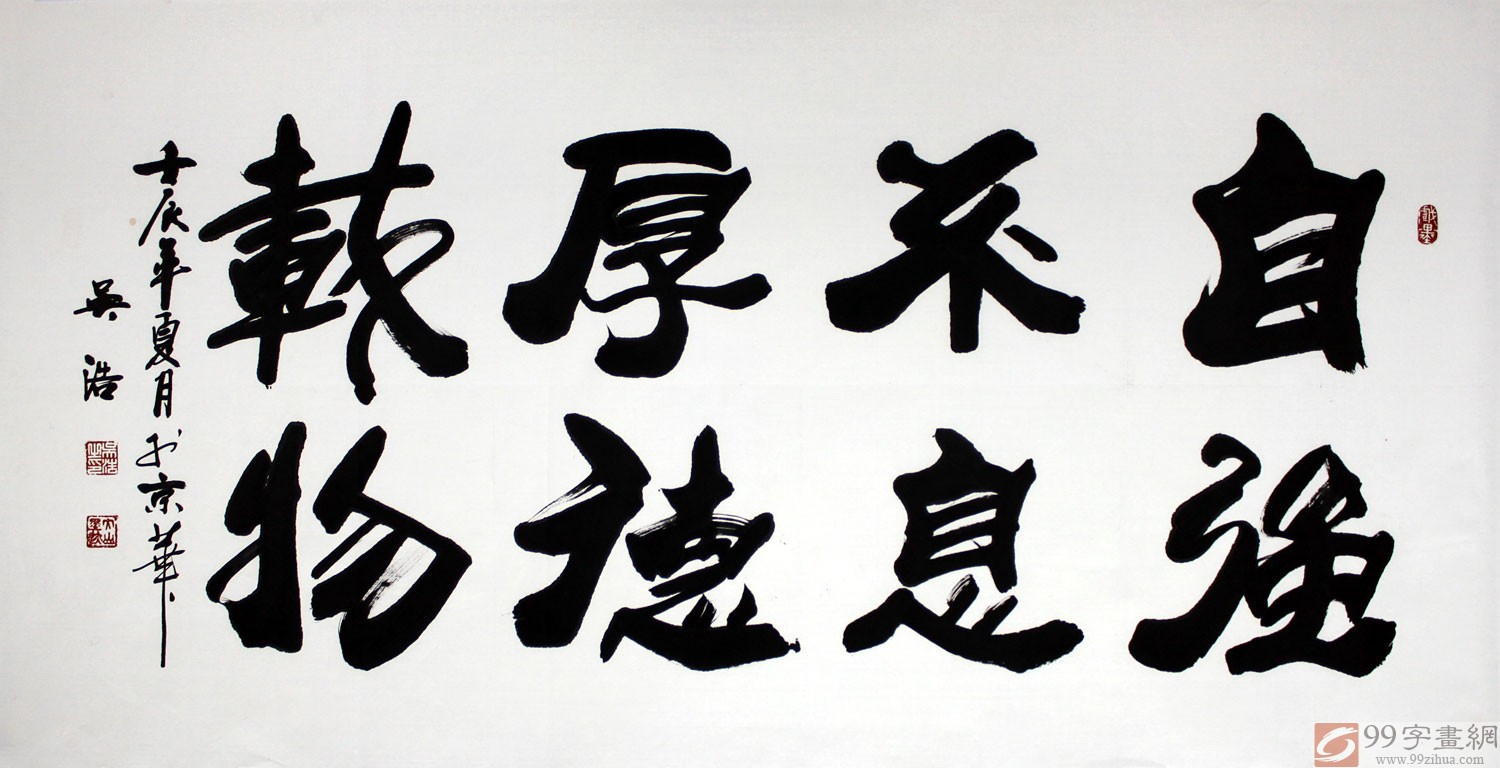 自強
不息
厚德
載物
壬辰年夏月於京華
吳浩
99字畫網
www.99zihua.com